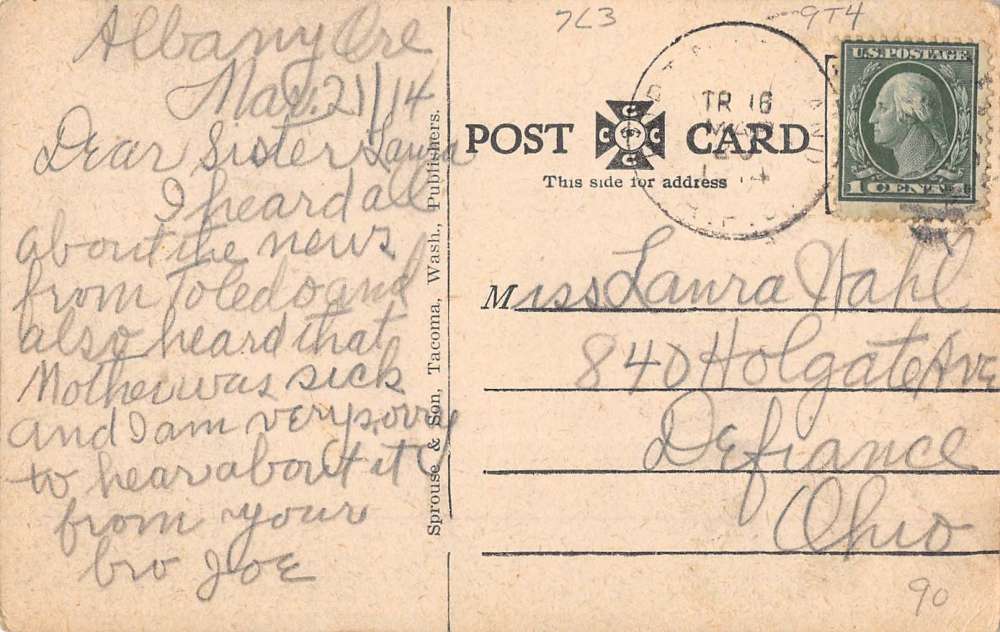 Albany Ore
Mar. 21/14
Dear Sister Laura
I heard all
about the news
from Toledo and
also heard that
Mother was sick
and I am very sorry
to hear about it
from your
bro Joe
Sprouse & Son, Tacoma, Wash., Publishers.
7L3
9T4
POST CARD
This side for address
TR 16
MAR
U.S. POSTAGE
1 CENT 1
Miss Laura Hahl
840 Holgate Ave
Defiance
Ohio
90